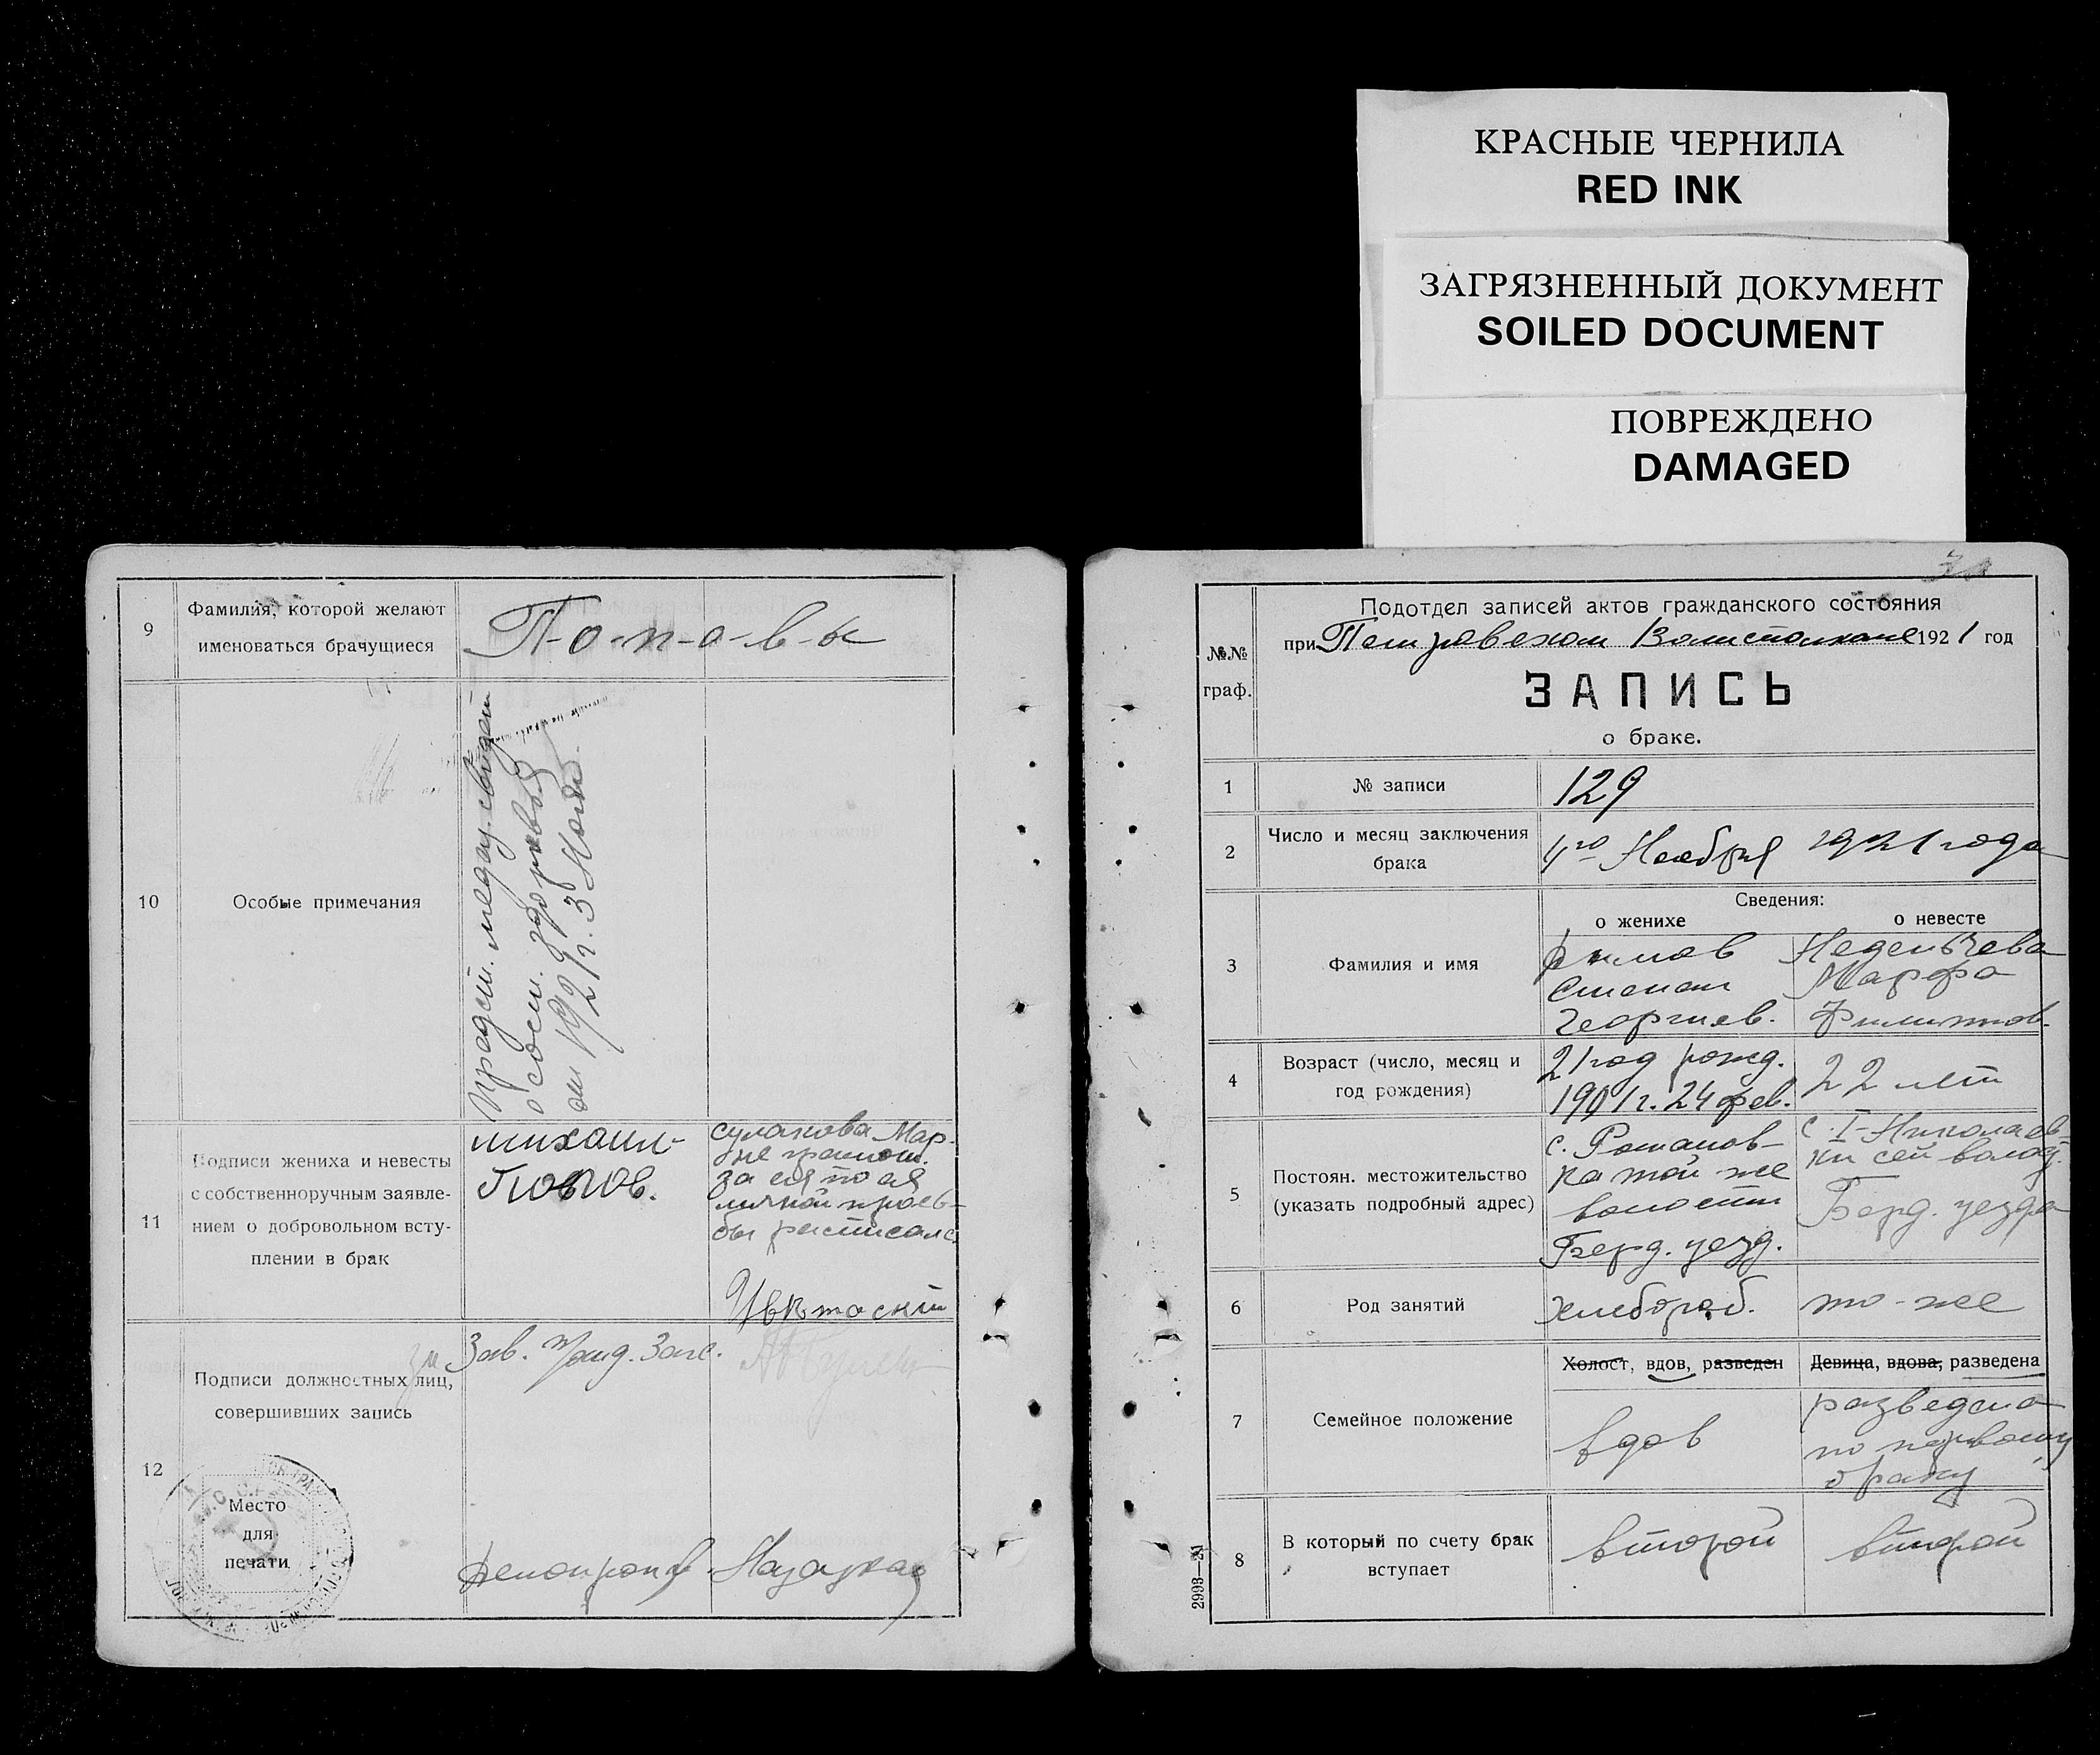 КРАСНЫЕ ЧЕРНИЛА
RED INK
ЗАГРЯЗНЕННЫЙ ДОКУМЕНТ
SOILED DOCUMENT
ПОВРЕЖДЕНО
DAMAGED
9
Фамилия, которой желают
именоваться брачущиеся
П-о-п-о-в-ы
10
Особые примечания
Предст. медиц. свидет
о сост. здоровья
от 1921 г. 3 Нояб.
11
Подписи жениха и невесты
с собственноручным заявле-
нием о добровольном всту-
плении в брак
михаил
Попов.
сулакова Мар.
не грамот.
за ея по ея
личной прось-
бы расписалс
12
Зав. Загс.
Подписи должностных лиц,
совершивших запись
Место
для
печати
Делопроизв.
№№
граф.
Подотдел записей актов гражданского состояния
при Петровском Волисполкоме 1921 год
ЗАПИСЬ
о браке.
1
№ записи
129
2
Число и месяц заключения
брака
4го Ноября 1921 года
Сведения:
о женихе
о невесте
3
Фамилия и имя
Степан
Марфа
Георгиев.
4
Возраст (число, месяц и
год рождения)
21 год рожд.
1901 г. 24 фев.
22 лет
5
Постоян. местожительство
(указать подробный адрес)
с. Романов-
ка той же
волости
Берд. уезд.
с. I-Николаев
ки сей волост.
Берд. уезда
6
Род занятий
хлебораб.
то-же
7
Семейное положение
Холост, вдов, разведен
Девица, вдова, разведена
вдов
разведена
по первому
браку
8
В который по счету брак
вступает
второй
второй
2993—21